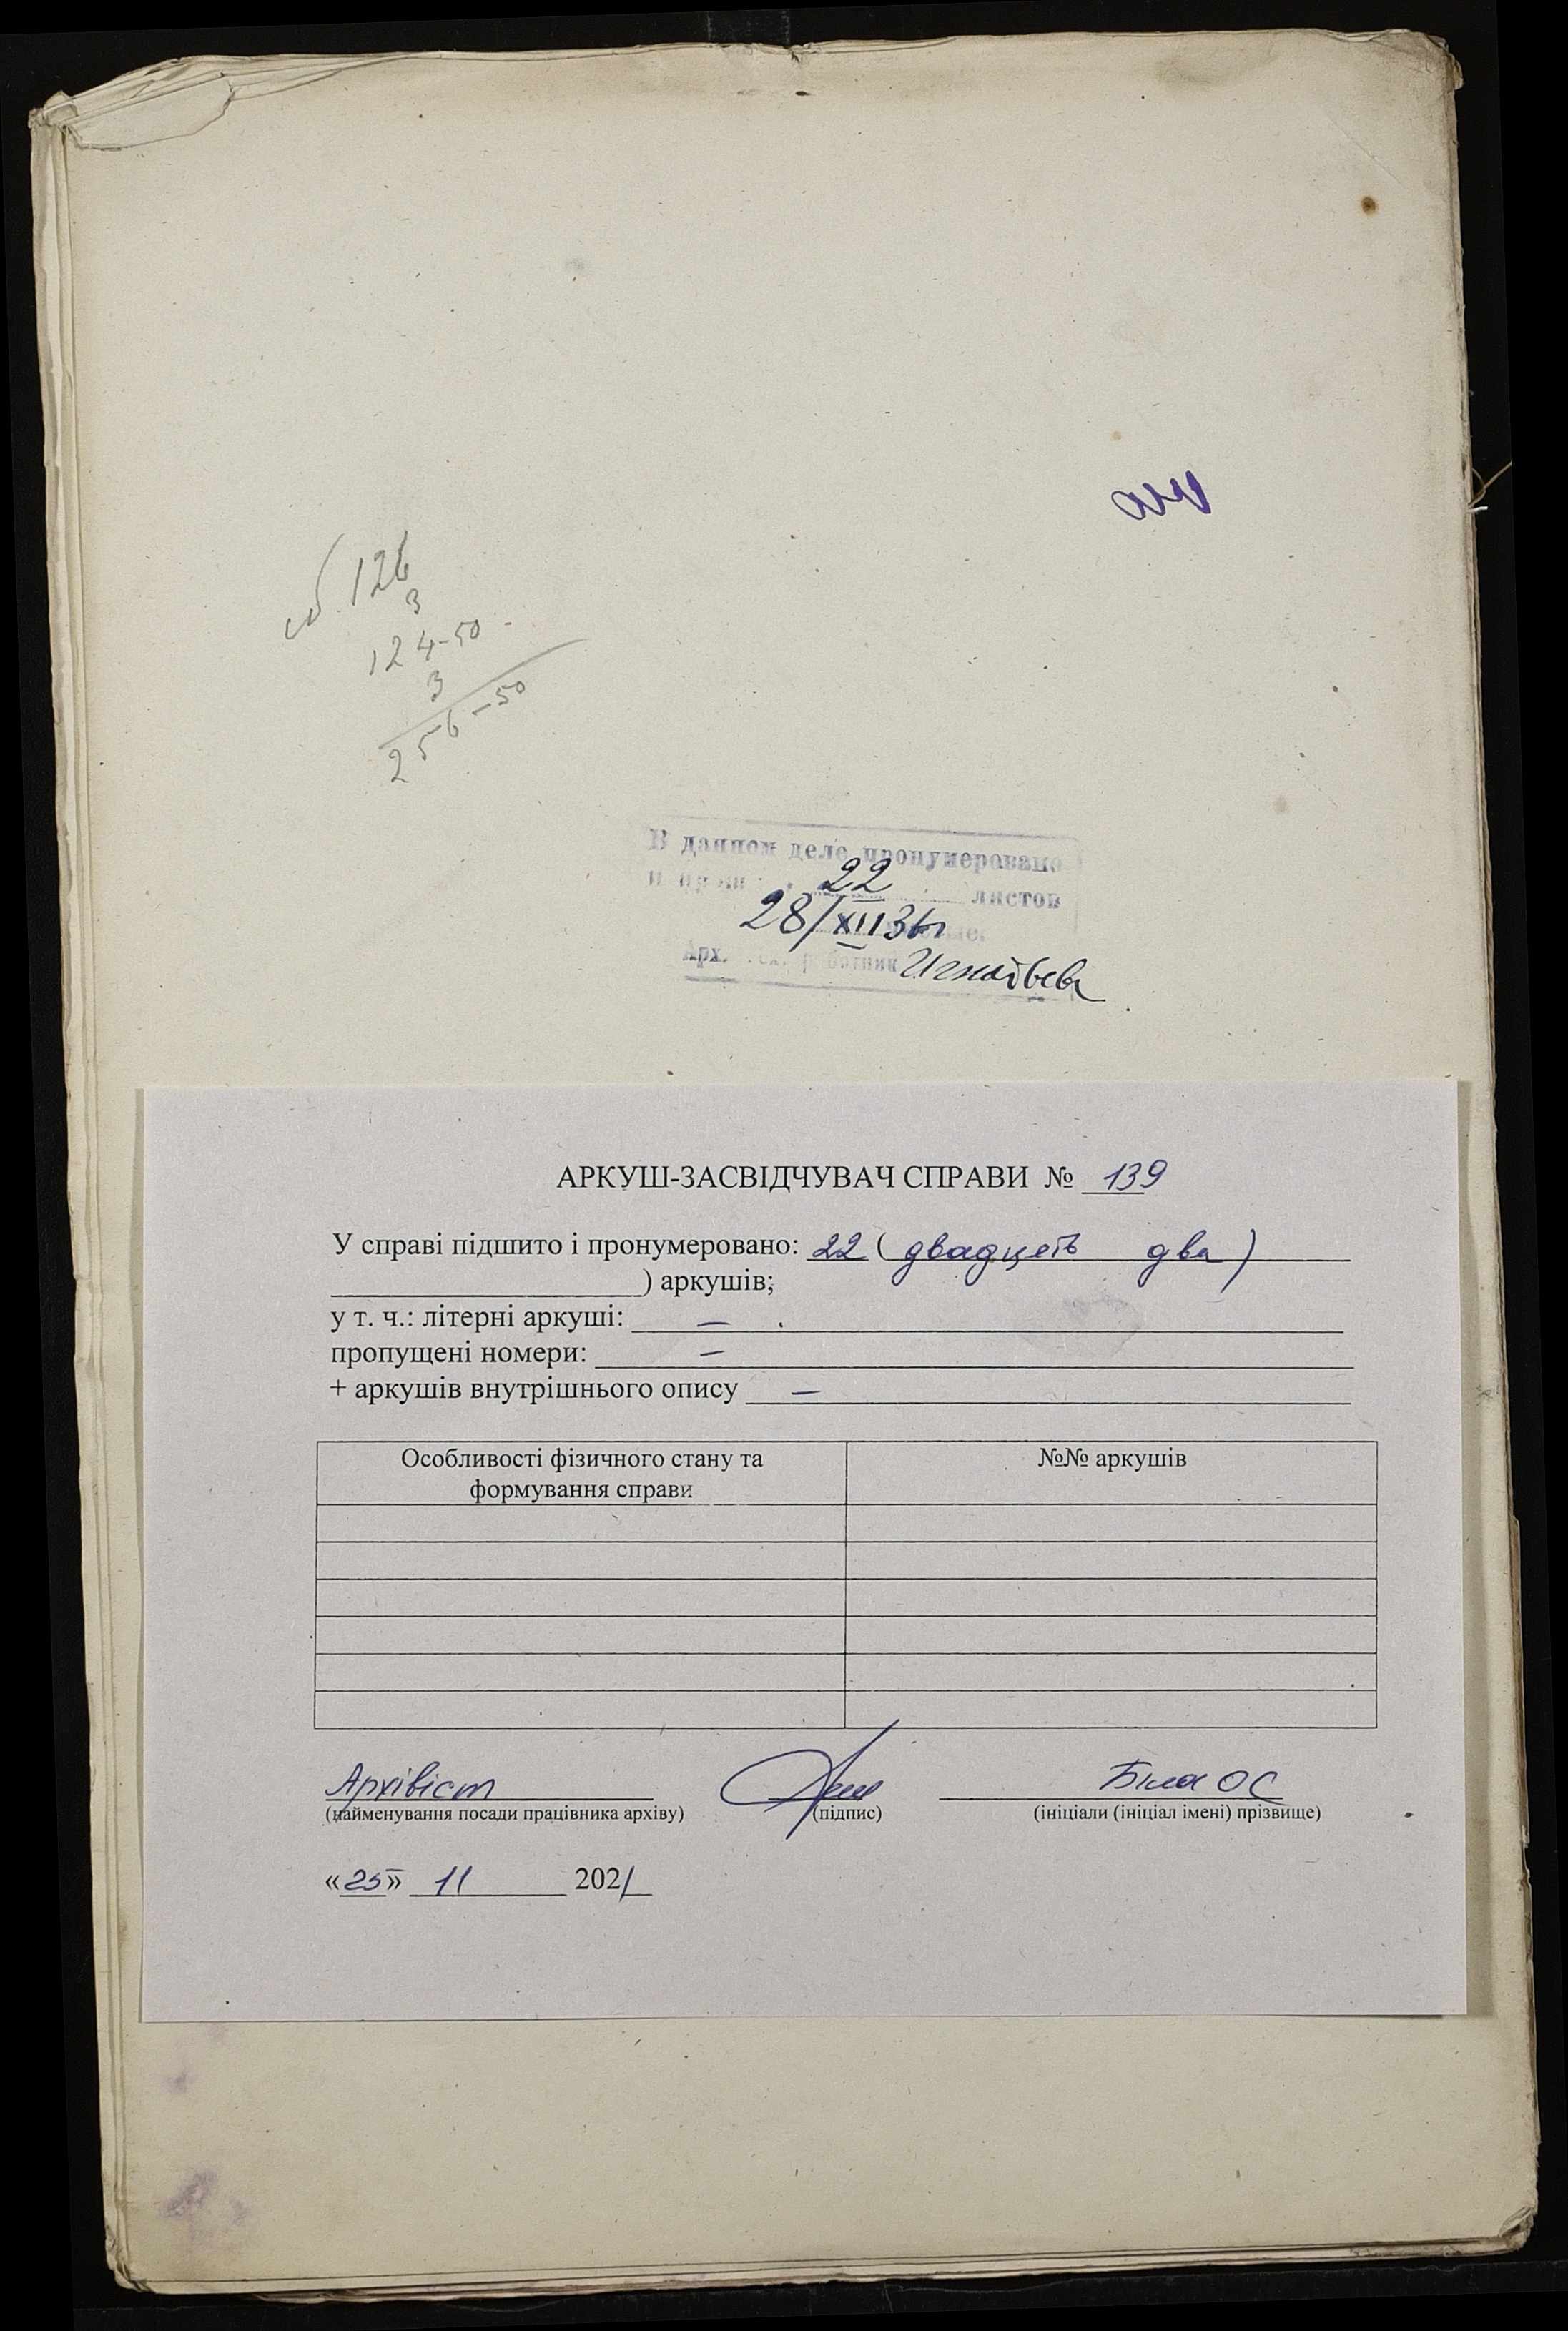 126
3
124-50
3
256-50
В данном деле пронумеровано
и 22 листов
28/XII 36
Арх. работник Игнатьева
АРКУШ-ЗАСВІДЧУВАЧ СПРАВИ № 139
У справі підшито і пронумеровано: 22 ( двадцеть два )
) аркушів;
у т. ч.: літерні аркуші: —
пропущені номери: —
+ аркушів внутрішнього опису —
Особливості фізичного стану та
формування справи
№№ аркушів
Архівіст Біла ОС
(найменування посади працівника архіву) (підпис) (ініціали (ініціал імені) прізвище)
«25» 11 2021